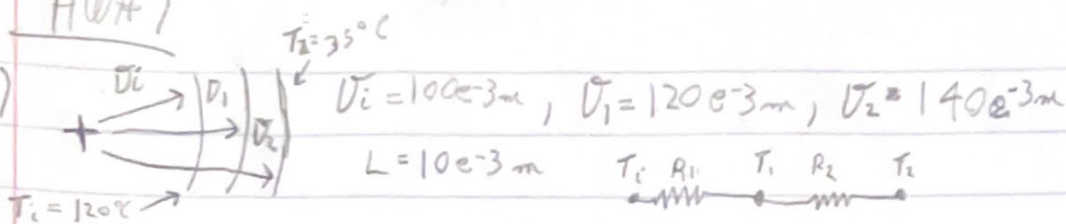 HW#1
T₂=35°C
) ri r₁ r₂ ri=100e-3m, r₁=120e-3m, r₂=140e-3m
+ L=10e-3m Ti R₁ T₁ R₂ T₂
Ti=120°C